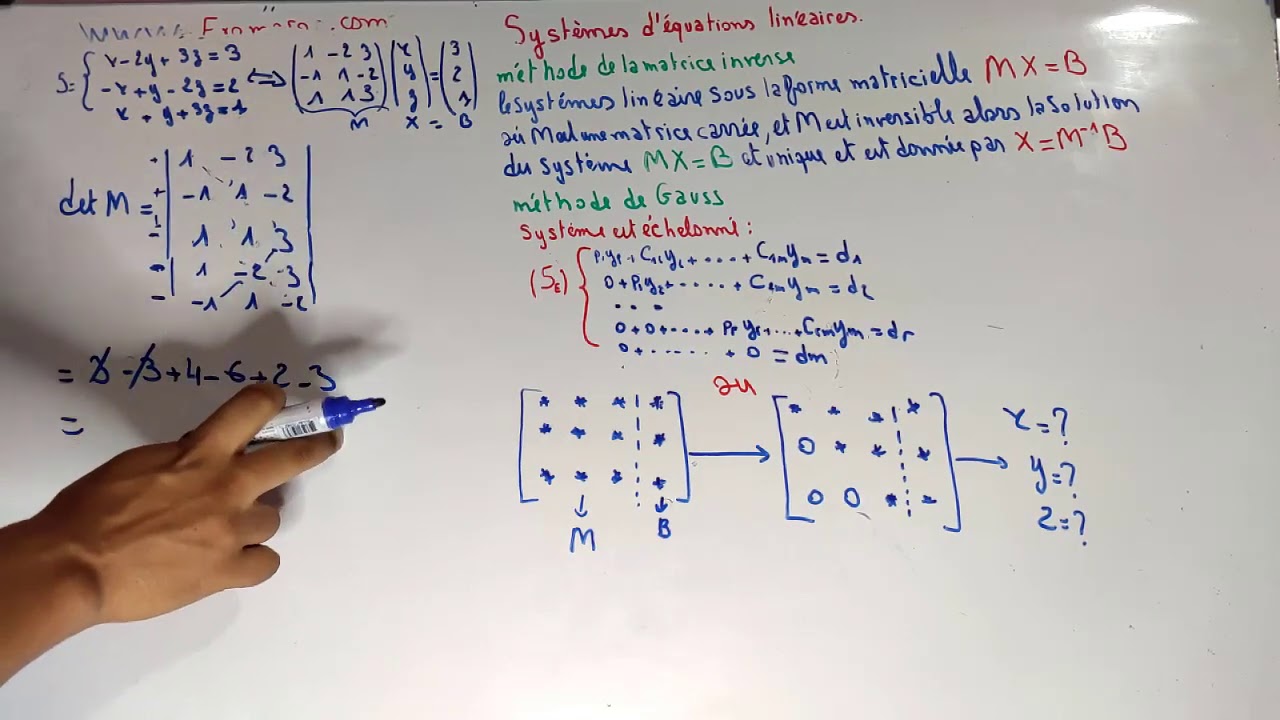 .com
S= { x-2y+3z=3
-x+y-2z=2
x+y+3z=1
⟺ ( 1 -2 3
-1 1 -2
1 1 3 )
( x
y
z )
= ( 3
2
1 )
M X = B
det M = | 1 -2 3
-1 1 -2
1 1 3
1 -2 3
-1 1 -2 |
+ + + - - -
= 3 - 3 + 4 - 6 + 2 - 3
=
Systèmes d'équations linéaires.
méthode de la matrice inverse
le systémes linéaire sous la forme matricielle MX=B
où M est une matrice carrée, et M est inversible alors la solution
du système MX=B et unique et est donnée par X=M⁻¹B
méthode de Gauss
système est échelonné :
(S_E) { P₁y₁ + C₁₂y₂ + .... + C₁ₘyₘ = d₁
0 + P₂y₂ + ..... + C₂ₘyₘ = d₂
...
0+0+....+ Pᵣyᵣ+...Cᵣₘyₘ = dᵣ
0+...... + 0 = dm
ou
[ * * * ¦ *
* * * ¦ *
* * * ¦ * ]
→ [ * * * ¦ *
0 * * ¦ *
0 0 * ¦ * ]
→ x=?
y=?
z=?
↓ ↓
M B